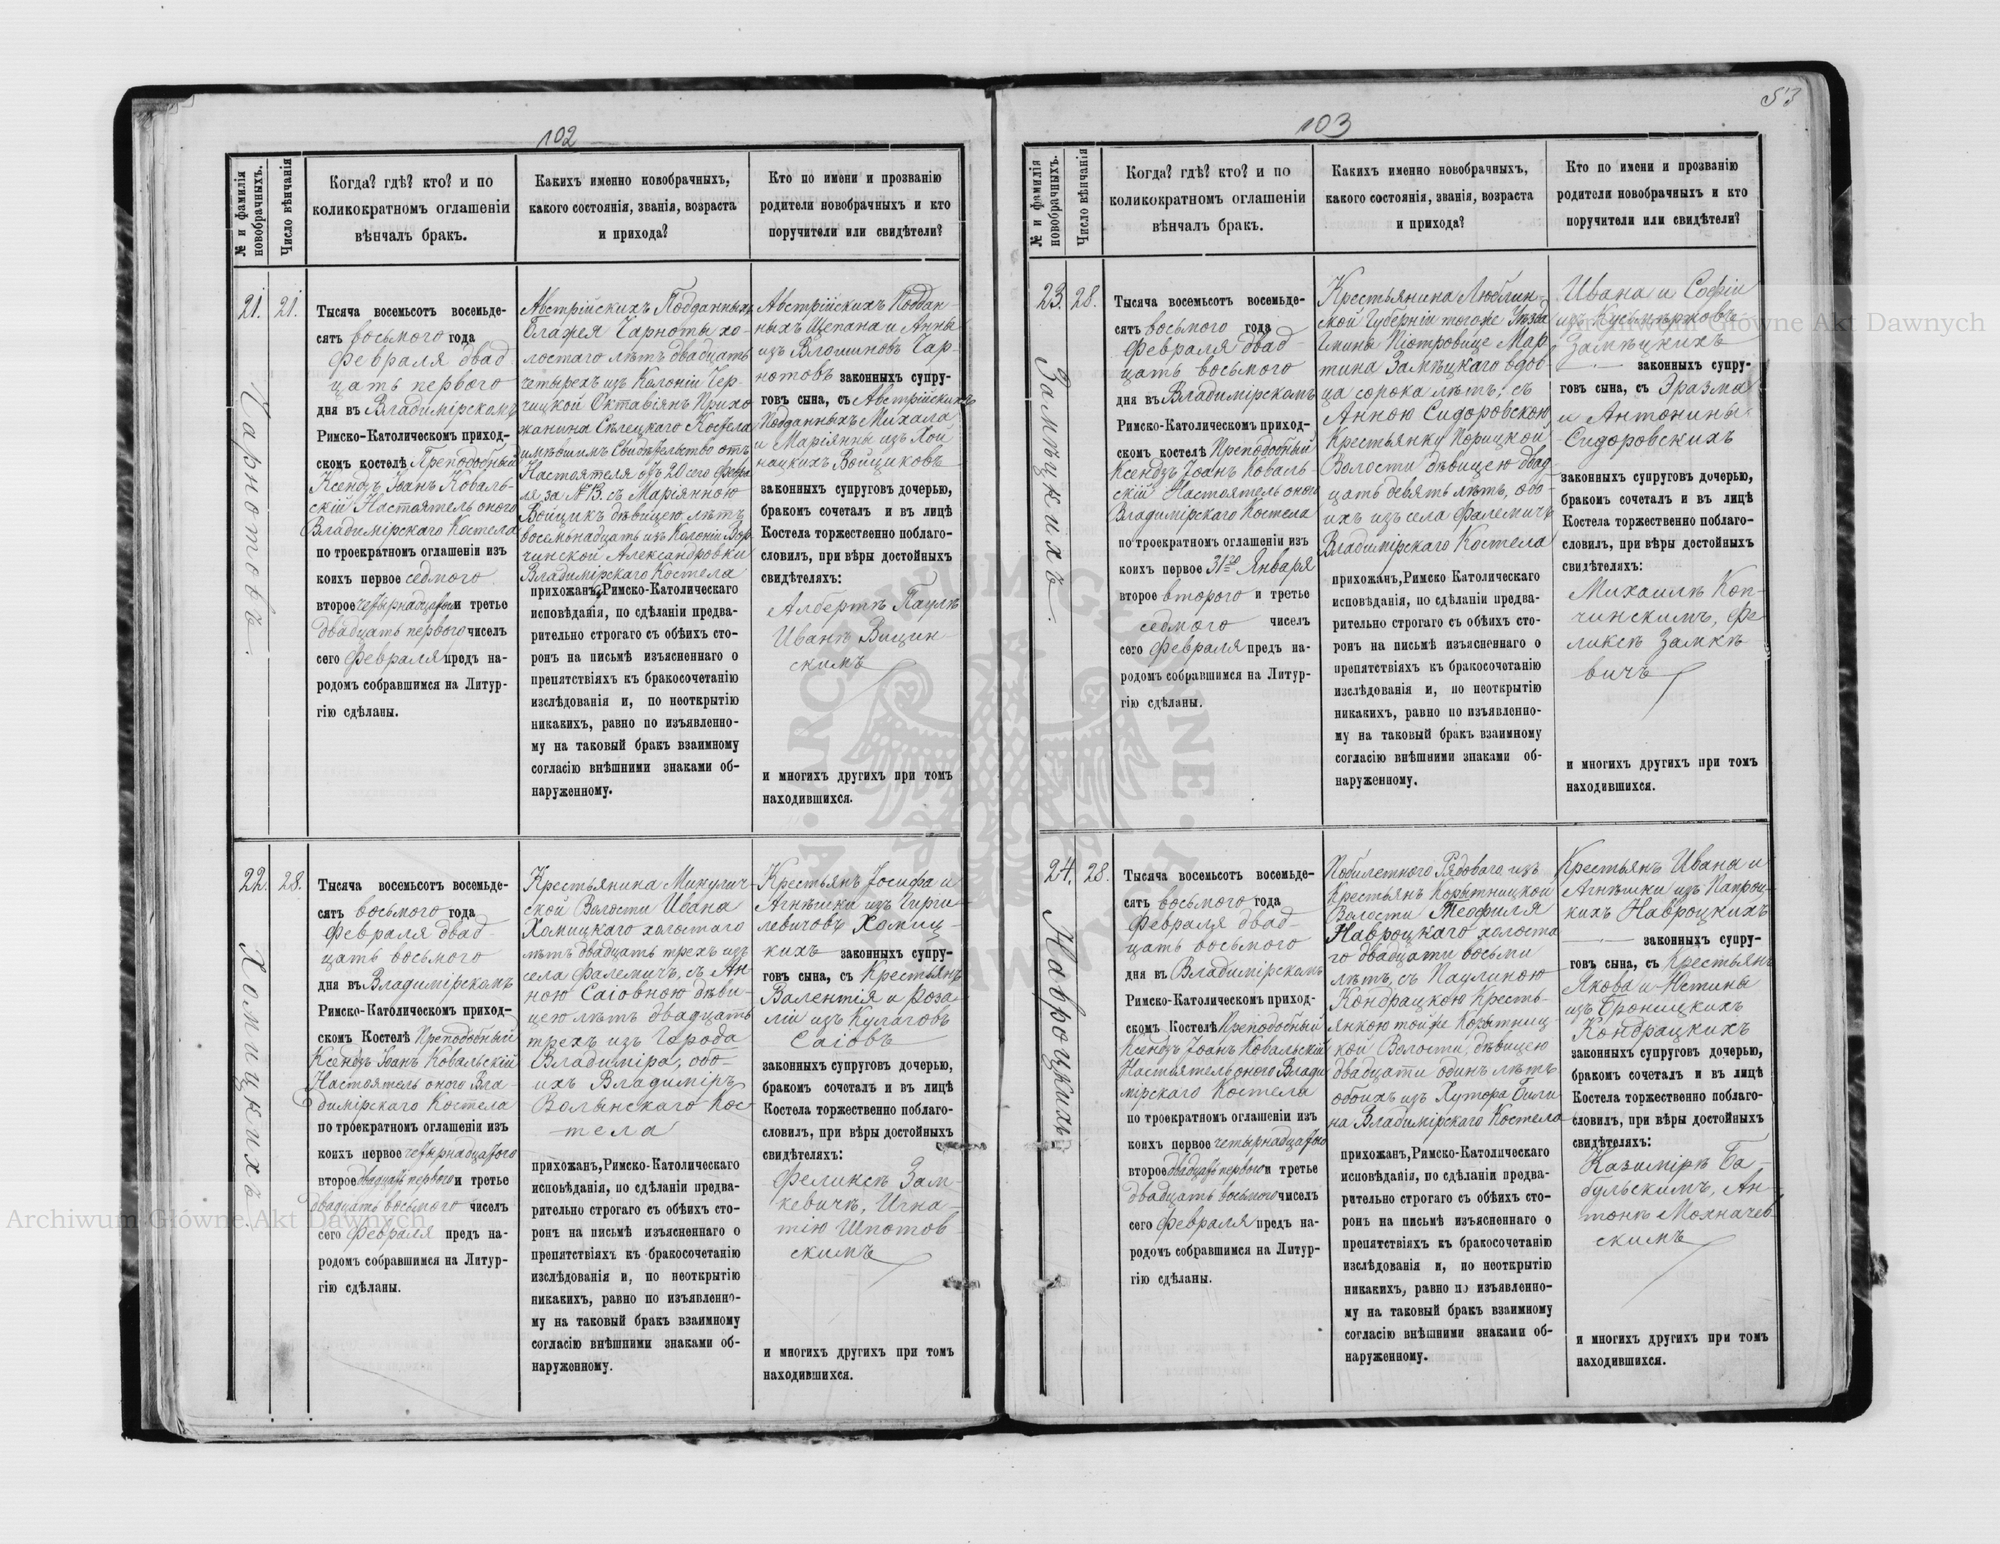 53
102
№ и фамилія новобрачныхъ.
Число вѣнчанія
Когда? гдѣ? кто? и по
коликократномъ оглашеніи
вѣнчалъ бракъ.
Какихъ именно новобрачныхъ,
какого состоянія, званія, возраста
и прихода?
Кто по имени и прозванію
родители новобрачныхъ и кто
поручители или свидѣтели?
21.
Чарнотовъ.
21.
Тысяча восемьсотъ восемьде-
сятъ восьмого года
Февраля двад-
цать первого
дня въ Владимірскомъ
Римско-Католическомъ приход-
скомъ костелѣ Преподобный
Ксендзъ Іоанъ Коваль-
скій Настоятель оного
Владимірскаго Костела
по троекратномъ оглашеніи изъ
коихъ первое седмого
второе четырнадцатого и третье
двадцать первого чиселъ
сего Февраля предъ на-
родомъ собравшимся на Литур-
гію сдѣланы.
Австрійскихъ Подданныхъ
Блажея Чарноты хо-
лостаго лѣтъ двадцать
четырехъ изъ Колоніи Чер-
чицкой Октавіянъ Прихо
жанина Сѣлецкаго Костела
имѣвшимъ Свидѣтельство отъ
Настоятеля отъ 20 сего Февра-
ля за №13. съ Маріянною
Войцикъ дѣвицею лѣтъ
восемьнадцать изъ Колоніи Вор-
чинской Александровки
Владимірскаго Костела
прихожанъ, Римско-Католическаго
исповѣданія, по сдѣланіи предва-
рительно строгаго съ обѣихъ сто-
ронъ на письмѣ изъясненнаго о
препятствіяхъ къ бракосочетанію
изслѣдованія и, по неоткрытію
никакихъ, равно по изъявленно-
му на таковый бракъ взаимному
согласію внѣшними знаками об-
наруженному.
Австрійскихъ Поддан-
ныхъ Щепана и Анны
изъ Влошиновъ Чар-
нотовъ законныхъ супру-
говъ сына, съ Австрійскихъ
Подданныхъ Михала
и Маріянны изъ Хой
нацкихъ Войциковъ
законныхъ супруговъ дочерью,
бракомъ сочеталъ и въ лицѣ
Костела торжественно поблаго-
словилъ, при вѣры достойныхъ
свидѣтеляхъ:
Албертъ Паулъ
Иванъ Вицин-
скимъ
и многихъ другихъ при томъ
находившихся.
22.
Хомицкихъ
28.
Тысяча восемьсотъ восемьде-
сятъ восьмого года
Февраля двад-
цать восьмого
дня въ Владимірскомъ
Римско-Католическомъ приход-
скомъ Костелѣ Преподобный
Ксендзъ Іоанъ Ковальскій
Настоятель оного Вла-
димірскаго Костела
по троекратномъ оглашеніи изъ
коихъ первое четырнадцатого
второе двадцать первого и третье
двадцать восьмого чиселъ
сего Февраля предъ на-
родомъ собравшимся на Литур-
гію сдѣланы.
Крестьянина Микулич-
ской Волости Ивана
Хомицкаго холостаго
лѣтъ двадцать трехъ изъ
села Фалемичъ, съ Ан
ною Саіовною дѣви-
цею лѣтъ двадцать
трехъ изъ Города
Владиміра, обо-
ихъ Владиміръ
Волынскаго Кос
тела
прихожанъ, Римско-Католическаго
исповѣданія, по сдѣланіи предва-
рительно строгаго съ обѣихъ сто-
ронъ на письмѣ изъясненнаго о
препятствіяхъ къ бракосочетанію
изслѣдованія и, по неоткрытію
никакихъ, равно по изъявленно-
му на таковый бракъ взаимному
согласію внѣшними знаками об-
наруженному.
Крестьянъ Іосифа и
Агнѣшки изъ Гирги
левичовъ Хомиц-
кихъ законныхъ супру-
говъ сына, съ Крестьянъ
Валентія и Роза-
ліи изъ Кулаговъ
Саіовъ
законныхъ супруговъ дочерью,
бракомъ сочеталъ и въ лицѣ
Костела торжественно поблаго-
словилъ, при вѣры достойныхъ
свидѣтеляхъ:
Феликсъ Зам-
кевичъ, Игна-
тію Шпотов-
скимъ
и многихъ другихъ при томъ
находившихся.
103
№ и фамилія новобрачныхъ.
Число вѣнчанія
Когда? гдѣ? кто? и по
коликократномъ оглашеніи
вѣнчалъ бракъ.
Какихъ именно новобрачныхъ,
какого состоянія, званія, возраста
и прихода?
Кто по имени и прозванію
родители новобрачныхъ и кто
поручители или свидѣтели?
23.
Замѣцкихъ.
28.
Тысяча восемьсотъ восемьде-
сятъ восьмого года
Февраля двад-
цать восьмого
дня въ Владимірскомъ
Римско-Католическомъ приход-
скомъ костелѣ Преподобный
Ксендзъ Іоанъ Коваль-
скій Настоятель оного
Владимірскаго Костела
по троекратномъ оглашеніи изъ
коихъ первое 31го Января
второе второго и третье
седмого чиселъ
сего Февраля предъ на-
родомъ собравшимся на Литур-
гію сдѣланы.
Крестьянина Люблин-
ской Губерніи тогоже Уѣзда
Гмины Піотровице Мар-
тина Замѣцкаго вдов-
ца сорока лѣтъ, съ
Анною Сидоровскою
Крестьянку Порицкой
Волости дѣвицею двад-
цать девять лѣтъ, обо-
ихъ изъ села Фалемичъ
Владимірскаго Костела
прихожанъ, Римско Католическаго
исповѣданія, по сдѣланіи предва-
рительно строгаго съ обѣихъ сто-
ронъ на письмѣ изъясненнаго о
препятствіяхъ къ бракосочетанію
изслѣдованія и, по неоткрытію
никакихъ, равно по изъявленно-
му на таковый бракъ взаимному
согласію внѣшними знаками об-
наруженному.
Ивана и Софіи
изъ Кусьмѣржовъ
Замѣцкихъ
законныхъ супру-
говъ сына, съ Эразма
и Антонины
Сидоровскихъ
законныхъ супруговъ дочерью,
бракомъ сочеталъ и въ лицѣ
Костела торжественно поблаго-
словилъ, при вѣры достойныхъ
свидѣтеляхъ:
Михаилъ Коп-
чинскимъ, Фе-
ликсъ Замке
вичъ
и многихъ другихъ при томъ
находившихся.
24.
Навроцкихъ
28.
Тысяча восемьсотъ восемьде-
сятъ восьмого года
Февраля двад-
цать восьмого
дня въ Владимірскомъ
Римско-Католическомъ приход-
скомъ Костелѣ Преподобный
Ксендзъ Іоанъ Ковальскій
Настоятель оного Влади
мірскаго Костела
по троекратномъ оглашеніи изъ
коихъ первое четырнадцатого
второе двадцать первого и третье
двадцать восьмого чиселъ
сего Февраля предъ на-
родомъ собравшимся на Литур-
гію сдѣланы.
Побилетного Рядоваго изъ
Крестьянъ Корытницкой
Волости Теофиля
Навроцкаго холоста
го двадцати восьми
лѣтъ, съ Паулиною
Кондрацкою Кресть-
янкою тойже Корытниц-
кой Волости, дѣвицею
двадцати одинъ лѣтъ
обоихъ изъ Хутора Били
на Владимірскаго Костела
прихожанъ, Римско-Католическаго
исповѣданія, по сдѣланіи предва-
рительно строгаго съ обѣихъ сто-
ронъ на письмѣ изъясненнаго о
препятствіяхъ къ бракосочетанію
изслѣдованія и, по неоткрытію
никакихъ, равно по изъявленно-
му на таковый бракъ взаимному
согласію внѣшними знаками об-
наруженному.
Крестьянъ Ивана и
Агнѣшки изъ Папроц-
кихъ Навроцкихъ
законныхъ супру-
говъ сына, съ Крестьянъ
Якова и Юстины
изъ Броницкихъ
Кондрацкихъ
законныхъ супруговъ дочерью,
бракомъ сочеталъ и въ лицѣ
Костела торжественно поблаго-
словилъ, при вѣры достойныхъ
свидѣтеляхъ:
Казиміръ Ба-
бульскимъ, Ан-
тонъ Мохначев-
скимъ
и многихъ другихъ при томъ
находившихся.
Archiwum Główne Akt Dawnych
Archiwum Główne Akt Dawnych
ARCHIWUM GŁÓWNE AKT DAWNYCH